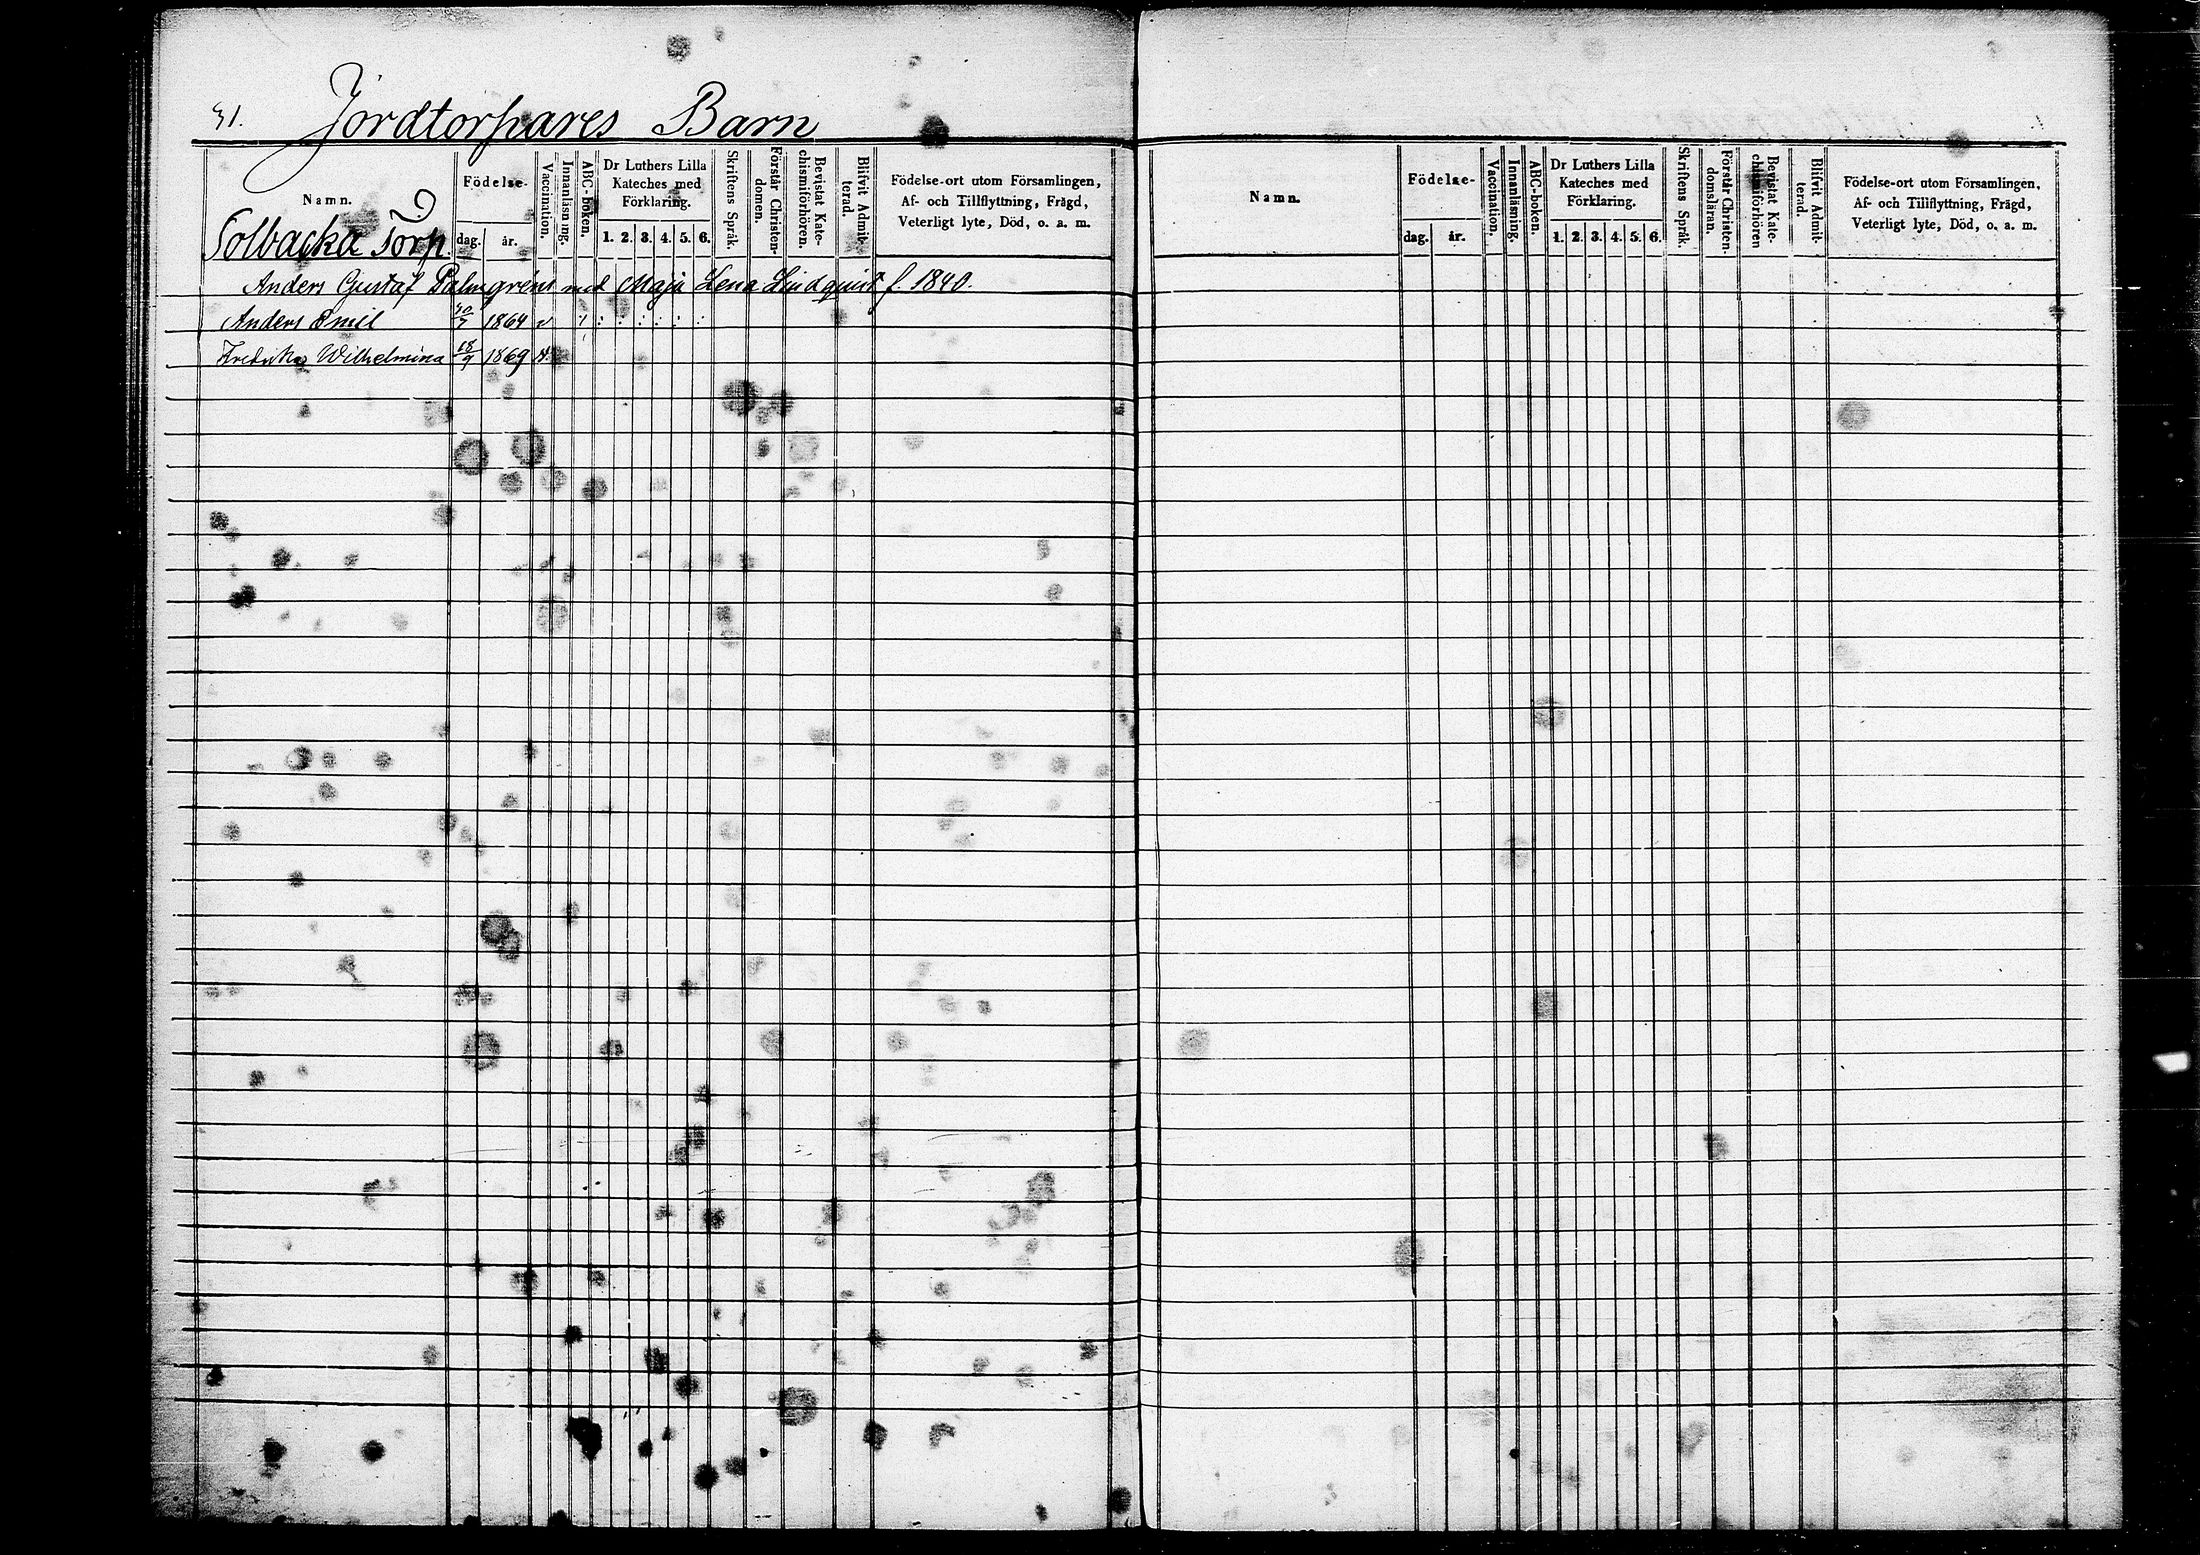 31.
Jordtorpares Barn
Namn.
Födelse-
dag. år.
Vaccination.
Innanläsning.
ABC-boken.
Dr Luthers Lilla
Kateches med
Förklaring.
1. 2. 3. 4. 5. 6.
Skriftens Språk.
Förstår Christen-
domen.
Bevistat Kate-
chismiförhören.
Blifvit Admit-
terad.
Födelse-ort utom Församlingen,
Af- och Tillflyttning, Frägd,
Veterligt lyte, Död, o. a. m.
Solbacka Torp.
Anders Gustaf Palmgréns med Maja Lena Lindquist f. 1840.
Anders Emil 1864 v
Fredrika Wilhelmina 18/9 1869 v.
Namn.
Födelse-
dag. år.
Vaccination.
Innanläsning.
ABC-boken.
Dr Luthers Lilla
Kateches med
Förklaring.
1. 2. 3. 4. 5. 6.
Skriftens Språk.
Förstår Christen-
domsläran.
Bevistat Kate-
chismiförhören
Blifvit Admit-
terad.
Födelse-ort utom Församlingen,
Af- och Tillflyttning, Frägd,
Veterligt lyte, Död, o. a. m.